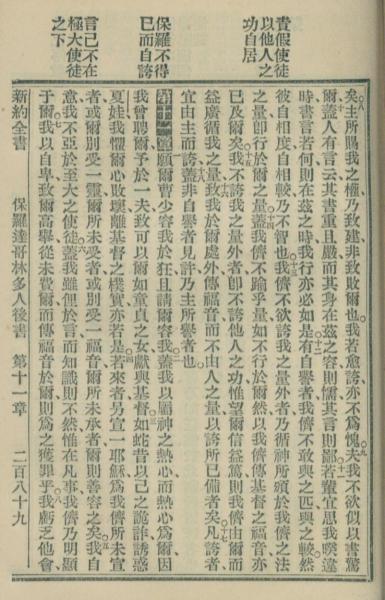 責假使徒
以他人之
功自居
保羅不得
已而自誇
言己不在
極大使徒
之下
矣主所賜我之權乃致建非致敗爾也我若愈誇亦不爲愧夫我不欲似以書驚
爾蓋人有言云其書重且嚴而其身在茲之容則懦其言則鄙若輩宜思我暌違
時書言若何則在茲之時我行亦必如是有自譽者我儕不敢與之匹與之較然
彼自相度自相較乃不智也我儕不欲誇我之量外者乃循神所頒於我儕之法
之量卽行於爾之量蓋我儕不踰乎量如不行於爾然以我儕傳基督之福音亦
已及爾矣我不誇我之量外者卽不誇他人之功惟望爾信益篤則我儕由爾而
益廣循我之量致我於爾處外傳福音而不由人之量以誇所已備者矣凡誇者
宜由主而誇蓋非自譽者見許乃主所譽者也
第十一章願爾曹少容我於狂且請爾容我蓋我以關神之熱心而熱心爲爾因
我曾聘爾予於一夫致可以爾如童貞之女獻與基督如蛇昔以己之詭詐誘惑
夏娃我懼爾心敗壞離基督之樸實亦若是若來者另宣一耶穌爲我儕所未宣
者或爾別受一靈爾所未受者或別受一福音爾所未承者爾則善容之矣我自
意我不亞於至大之使徒蓋我雖俚於言而知識則不然惟在凡事我儕乃明顯
于爾我以自卑致爾高舉從未費爾而傳福音於爾則爲之獲罪乎我虧乏他會
新約全書 保羅達哥林多人後書 第十一章 二百八十九